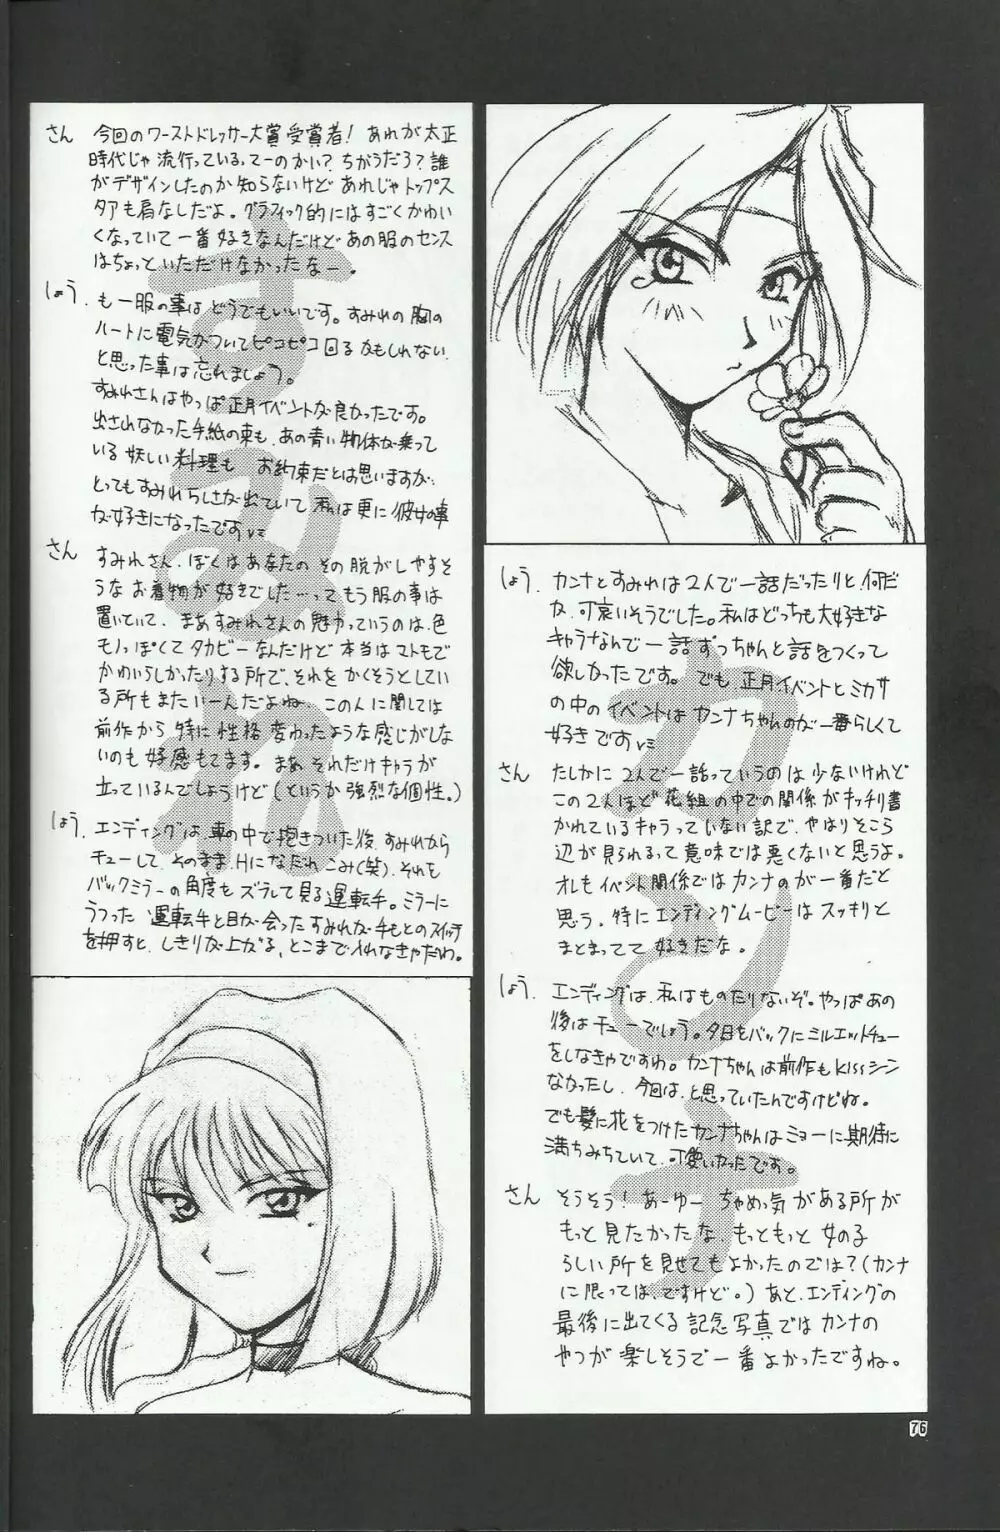 さん 今回のワーストドレッサー大賞受賞者! あれが太正
時代じゃ流行っている、てーのかい?ちがうだろ?誰
がデザインしたのか知らないけど あれじゃトップス
タアも肩なしだよ。グラフィック的にはすごくかわい
くなっていて一番好きなんだけど あの服のセンス
はちょっといただけなかったなー。
しょう. もー服の事はどうでもいいです。すみれの胸の
ハートに電気がついてピコピコ回るかもしれない.
と思った事は忘れましょう。
すみれさんはやっぱ正月イベントが良かったです。
出されなかった手紙の束も、あの青い物体が乗って
いる妖しい料理も お約束だとは思いますが、
とってもすみれらしさが出ていて 私は更に彼女の事
が好きになったです
さん すみれさん、ぼくはあなたの その脱がしやすそ
うな お着物が好きでした…ってもう服の事は
置いていて、まあすみれさんの魅力っていうのは、色
モノっぽくてタカビーなんだけど本当はマトモで
かわいらしかったりする所で、それをかくそうとしてい
る所もまたいーんだよね。この人に関しては
前作から特に性格変わったような感じがしな
いのも好感もてます。まあそれだけキャラが
立っているんでしょうけど(というか強烈な個性。)
しょう. エンディングは、車の中で抱きついた後、すみれから
チューして、そのまま、Hになだれこみ(笑)、それを
バックミラーの角度もズラして見る運転手。ミラーに
うつった 運転手と目が会ったすみれが手もとのスイッチ
を押すと、しきりが上がる、とこまで入れなきゃだわ。
しょう. カンナとすみれは2人で一話だったりと、何だ
か、可哀いそうでした。私はどっちも大好きな
キャラなんで一話ずっちゃんと話をつくって
欲しかったです。でも、正月イベントとミカサ
の中のイベントはカンナちゃんのが一番らしくて
好きです
さん たしかに2人で一話っていうのは少ないけれど
この2人ほど花組の中での関係がキッチリ書
かれているキャラっていない訳で、やはりそこら
辺が見られるって意味では悪くないと思うよ。
オレもイベント関係ではカンナのが一番だと
思う、特にエンディングムービーはスッキリと
まとまってて好きだな。
しょう. エンディングは、私はものたりないぞ。やっぱあの
後はチューでしょう。夕日をバックにシルエットチュー
をしなきゃですわ。カンナちゃんは前作もkissシーン
なかったし、今回は、と思っていたんですけどね。
でも髪に花をつけたカンナちゃんはミョーに期待に
満ちみちていて、可愛いかったです。
さん そうそう!あーゆー ちゃめっ気がある所が
もっと見たかったな、もっともっと女の子
らしい所を見せてもよかったのでは?(カンナ
に限っては、ですけど。)あと、エンディングの
最後に出てくる記念写真ではカンナの
やつが楽しそうで一番よかったですね。
すみれ
カンナ
76